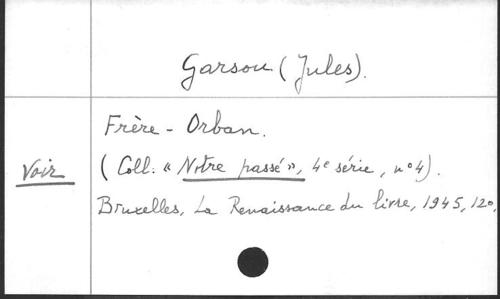 Garsou (Jules).
Frère-Orban.
Voir
(Coll. « Notre passé », 4e série, n° 4).
Bruxelles, La Renaissance du livre, 1945, 12°,